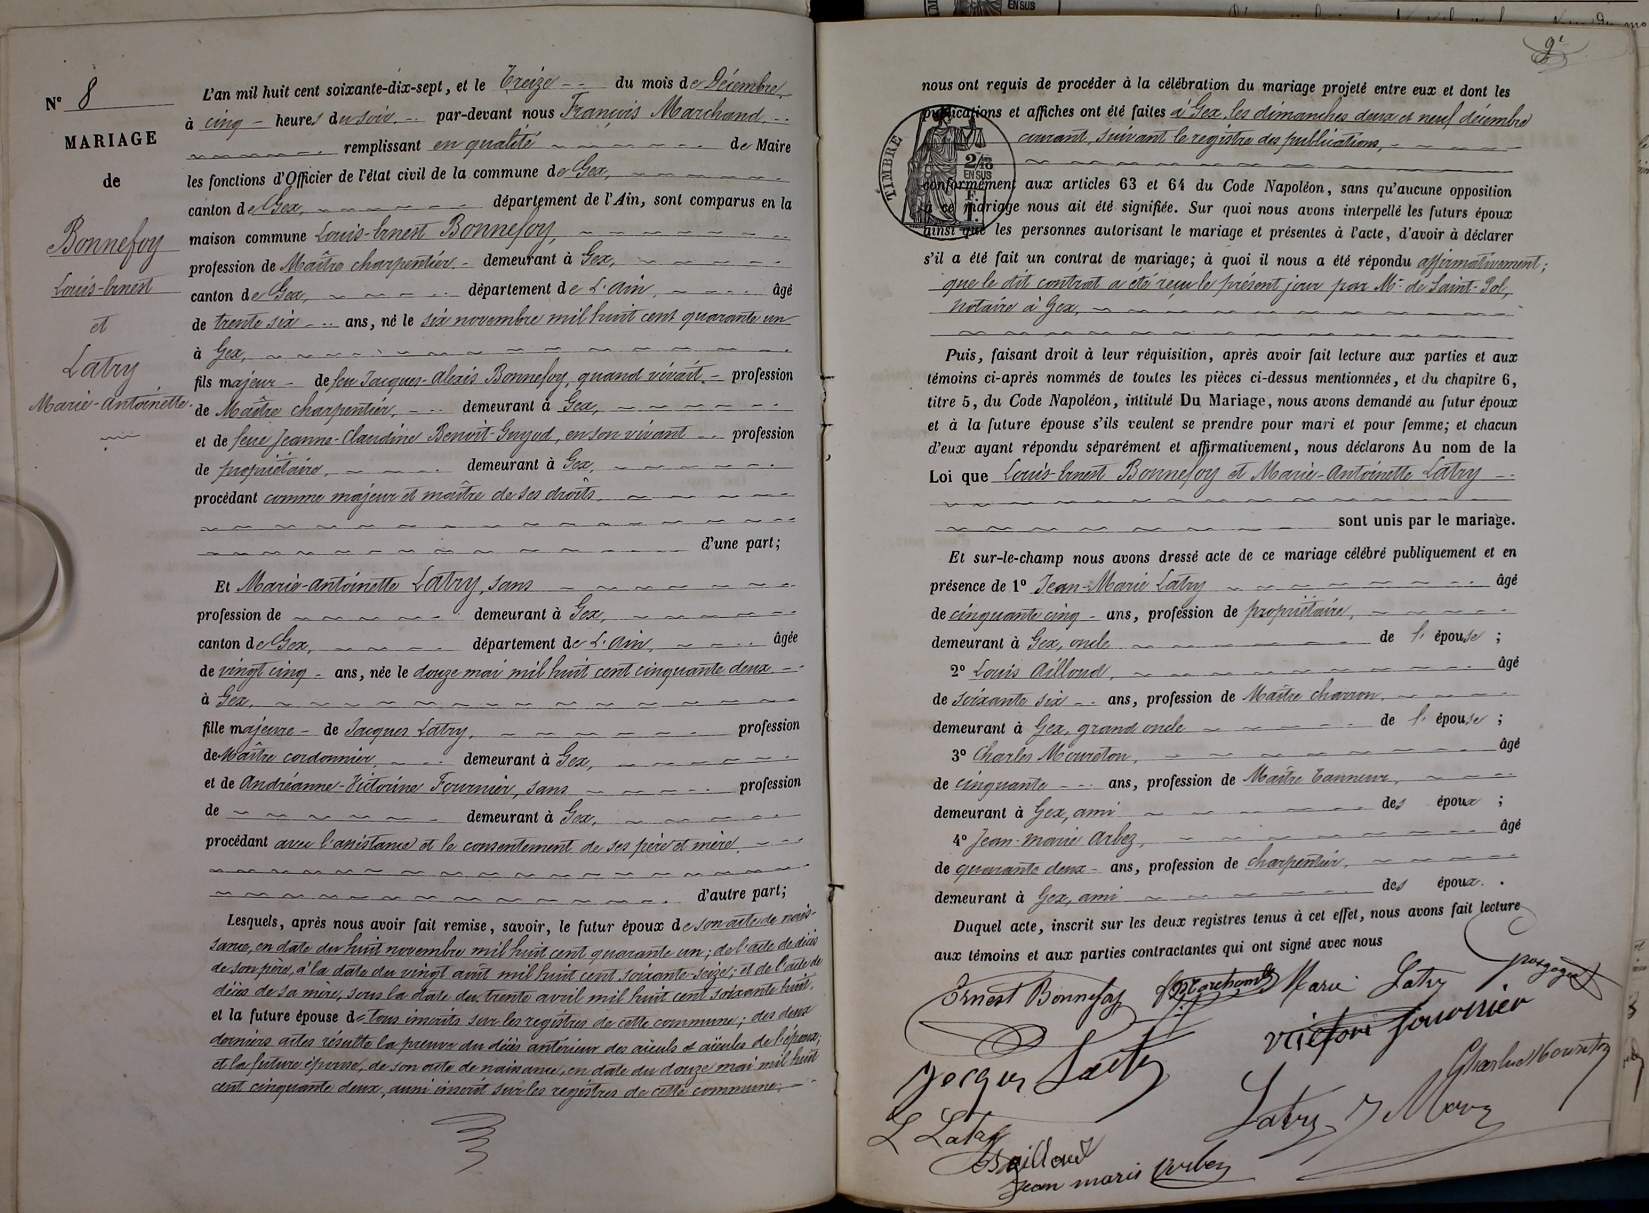 N° 8
MARIAGE
de
Bonnefoy
Louis-Ernest
et
Latry
Marie-Antoinette.
L'an mil huit cent soixante-dix-sept, et le Treize du mois de Décembre,
à cinq heures du soir, par-devant nous François Marchand
remplissant en qualité de Maire
les fonctions d'Officier de l'état civil de la commune de Gex,
canton de Gex, département de l'Ain, sont comparus en la
maison commune Louis-Ernest Bonnefoy,
profession de Maître charpentier, demeurant à Gex,
canton de Gex, département de L'Ain, âgé
de trente six ans, né le six novembre mil huit cent quarante un
à Gex,
fils majeur de feu Jacques-Alexis Bonnefoy, quand vivait, profession
de Maître charpentier, demeurant à Gex,
et de feue Jeanne-Claudine Benoît-Guyod, en son vivant profession
de propriétaire, demeurant à Gex,
procédant comme majeur et maître de ses droits
d'une part;
Et Marie-Antoinette Latry, sans
profession de demeurant à Gex,
canton de Gex, département de L'Ain, âgée
de vingt cinq ans, née le douze mai mil huit cent cinquante deux
à Gex,
fille majeure de Jacques Latry, profession
de Maître cordonnier, demeurant à Gex,
et de Andréanne-Victorine Fournier, sans profession
de demeurant à Gex,
procédant avec l'assistance et le consentement de ses père et mère.
d'autre part;
Lesquels, après nous avoir fait remise, savoir, le futur époux de son acte de nais-
sance, en date du huit novembre mil huit cent quarante un; de l'acte de décès
de son père, à la date du vingt août mil huit cent soixante-seize; et de l'acte de
décès de sa mère, sous la date du trente avril mil huit cent soixante huit,
et la future épouse d tous inscrits sur les registres de cette commune; des deux
derniers actes résulte la preuve du décès antérieur des aïeuls et aïeules de l'époux;
et la future épouse, de son acte de naissance, en date du douze mai mil huit
cent cinquante deux, aussi inscrit sur les registres de cette commune,
2
nous ont requis de procéder à la célébration du mariage projeté entre eux et dont les
publications et affiches ont été faites à Gex, les dimanches deux et neuf décembre
courant, suivant le registre des publications,
TIMBRE
2/10
EN SUS
F.
1.
conformément aux articles 63 et 64 du Code Napoléon, sans qu'aucune opposition
à ce mariage nous ait été signifiée. Sur quoi nous avons interpellé les futurs époux
ainsi que les personnes autorisant le mariage et présentes à l'acte, d'avoir à déclarer
s'il a été fait un contrat de mariage; à quoi il nous a été répondu affirmativement;
que le dit contrat a été reçu le présent jour par Me de Saint-Pol,
notaire à Gex,
Puis, faisant droit à leur réquisition, après avoir fait lecture aux parties et aux
témoins ci-après nommés de toutes les pièces ci-dessus mentionnées, et du chapitre 6,
titre 5, du Code Napoléon, intitulé Du Mariage, nous avons demandé au futur époux
et à la future épouse s'ils veulent se prendre pour mari et pour femme; et chacun
d'eux ayant répondu séparément et affirmativement, nous déclarons Au nom de la
Loi que Louis-Ernest Bonnefoy et Marie-Antoinette Latry
sont unis par le mariage.
Et sur-le-champ nous avons dressé acte de ce mariage célébré publiquement et en
présence de 1° Jean-Marie Latry âgé
de cinquante cinq ans, profession de propriétaire,
demeurant à Gex, oncle de l'épouse;
2° Louis Ailloud, âgé
de soixante six ans, profession de Maître charron,
demeurant à Gex, grand oncle de l'épouse;
3° Charles Moureton, âgé
de cinquante ans, profession de Maître Tanneur,
demeurant à Gex, ami des époux;
4° Jean-Marie Arbez, âgé
de quarante deux ans, profession de charpentier,
demeurant à Gex, ami des époux.
Duquel acte, inscrit sur les deux registres tenus à cet effet, nous avons fait lecture
aux témoins et aux parties contractantes qui ont signé avec nous
Ernest Bonnefoy F. Marchand Marie Latry
victori fournier
Jacques Latry
Charles Moureton
L Latry
Latry J Marie
Ls ailloud
jean marie Arbez